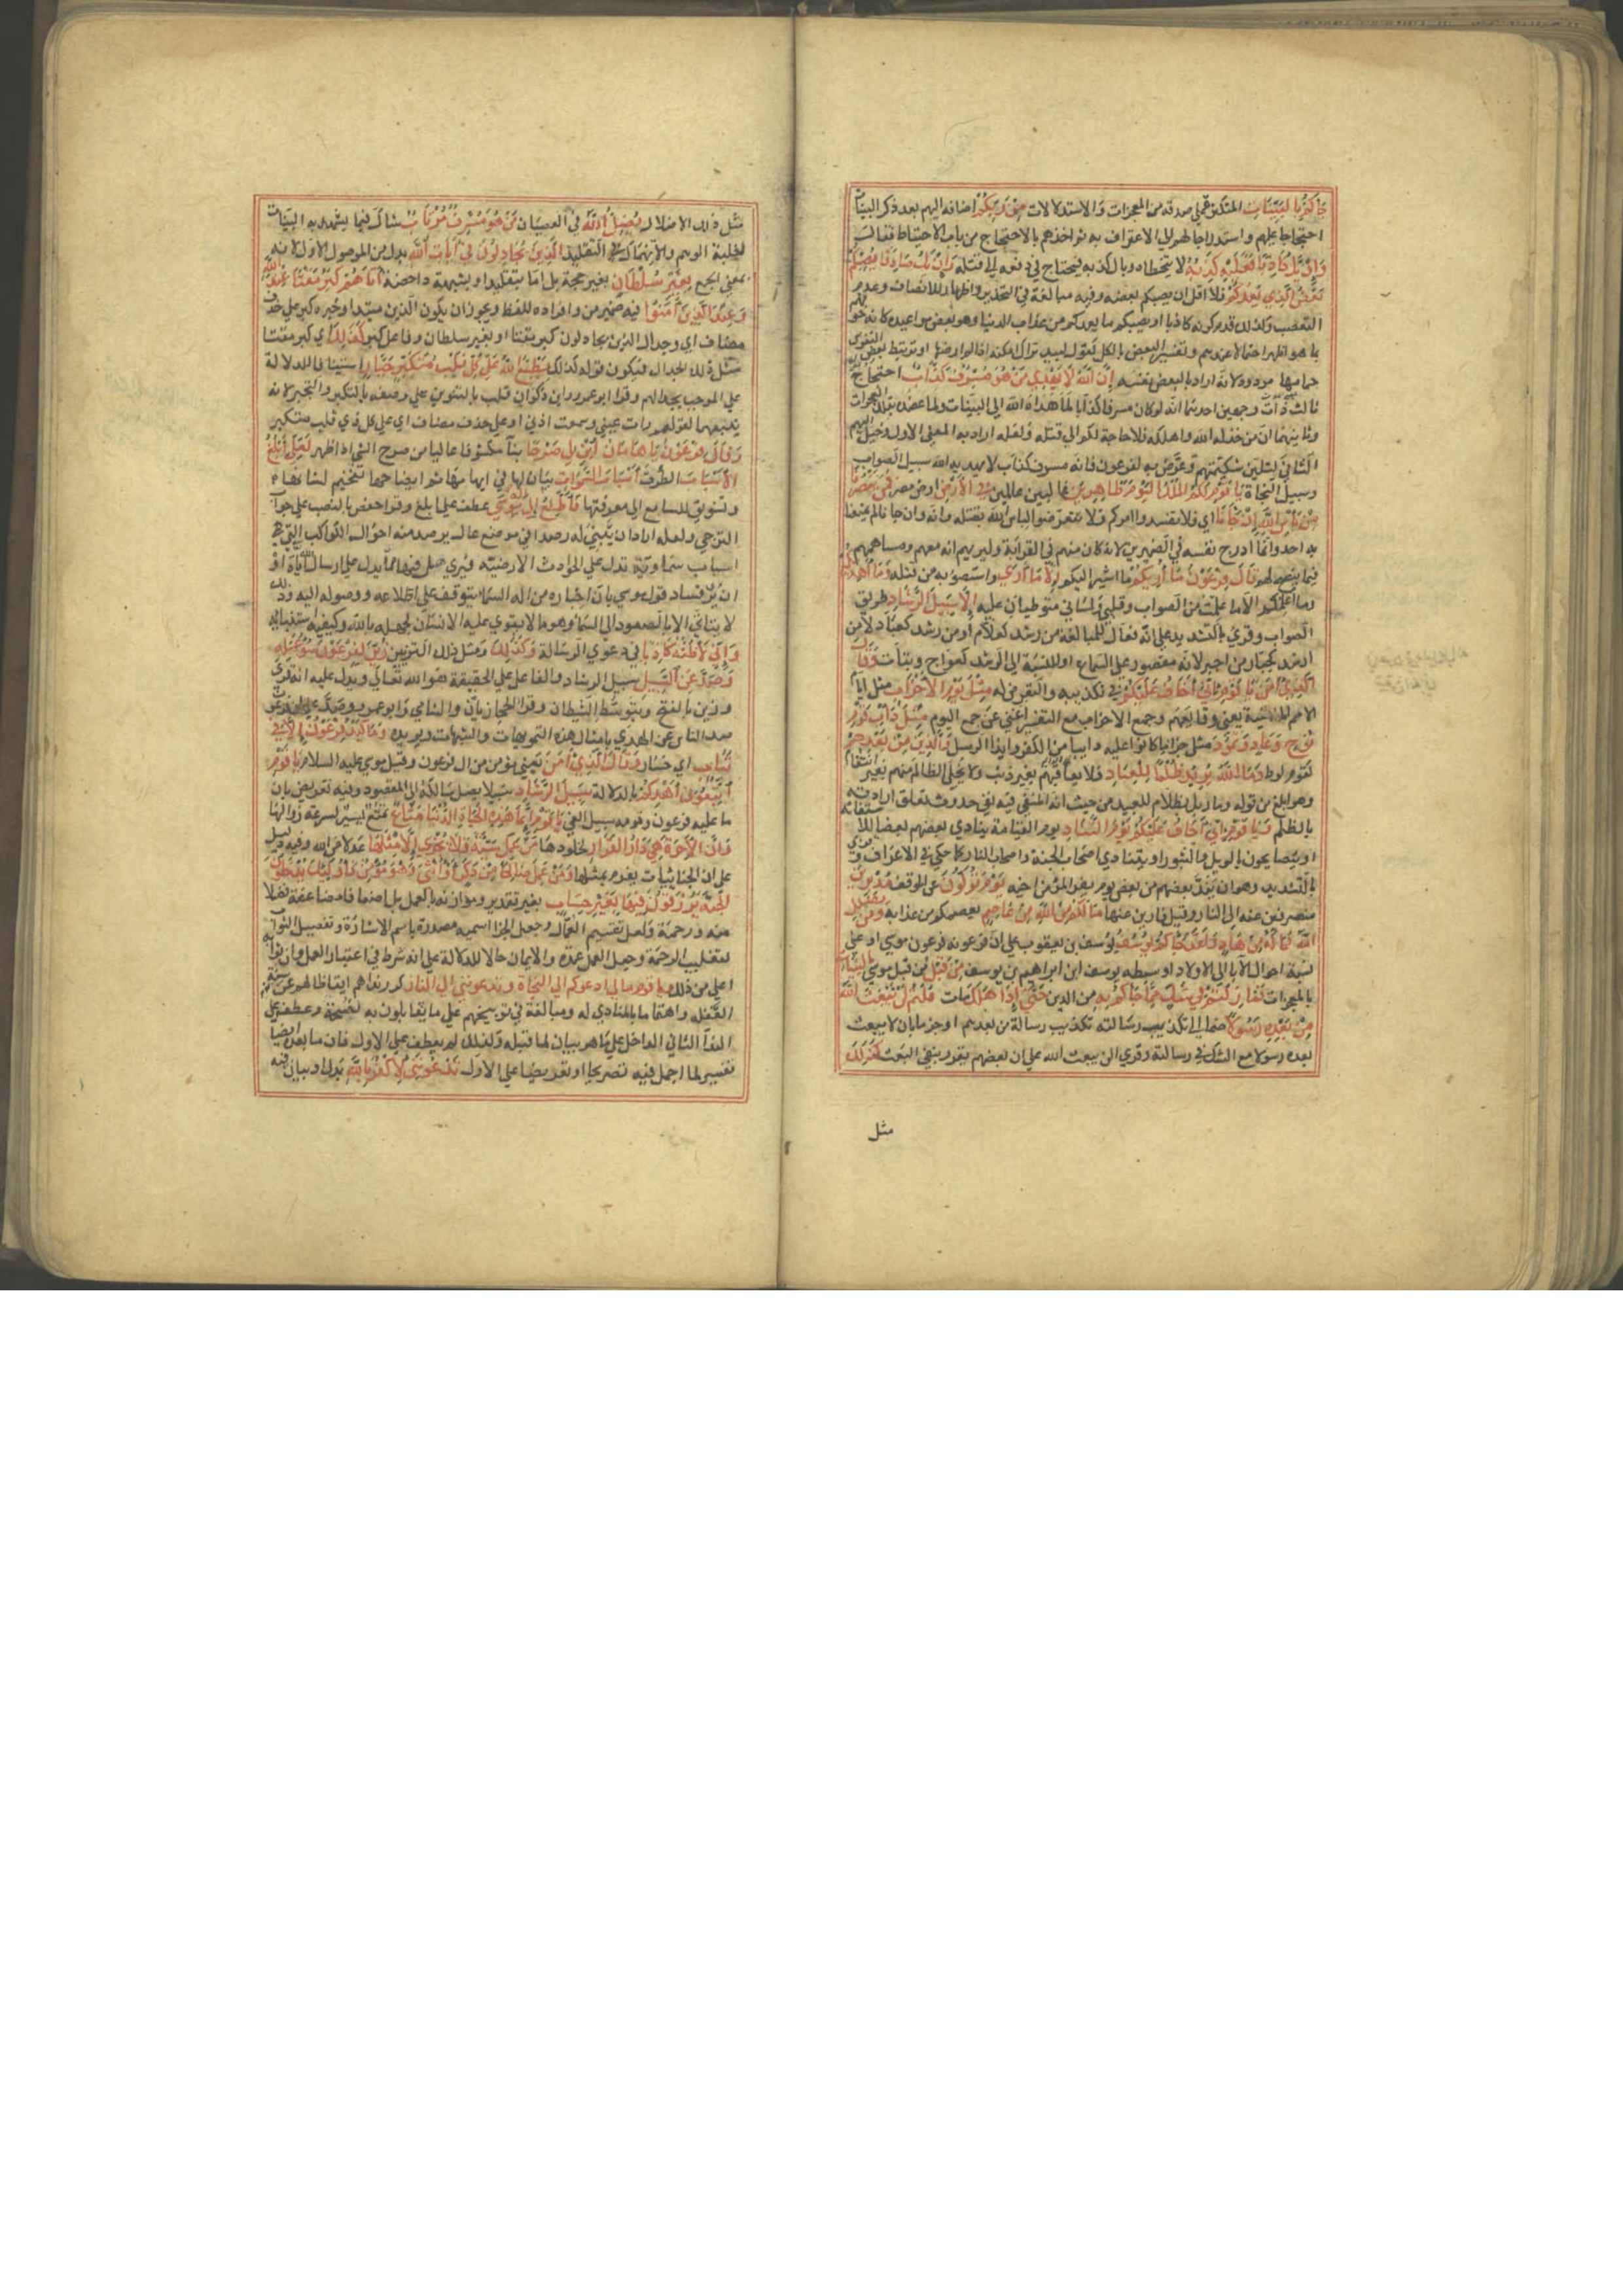 جاءكم بالبينات المتكثرة على صدقه من المعجزات والاستدلالات من ربكم اضافه اليهم بعد ذكر البينات
احتجاجا عليهم واستدراجا لهم الى الاعتراف به ثم اخذهم بالاحتجاج من باب الاحتياط فقال
وان يك كاذبا فعليه كذبه لا يتخطاه وبال كذبه فيحتاج في دفعه الى قتله وان يك صادقا يصبكم
بعض الذي يعدكم فلا اقل ان يصيبكم بعضه وفيه مبالغة في التحذير واظهار للانصاف وعدم
التعصب ولذلك قدم كونه كاذبا او يصبكم ما يعدكم من عذاب الدنيا وهو بعض مواعيده كانه خوفهم
بما هو اظهر احتمالا عندهم وتفسير البعض بالكل كقول لبيد تراك امكنة اذا لم ارضها او يرتبط بعض النفوس
حمامها مردود لانه اراد بالبعض نفسه ان الله لا يهدي من هو مسرف كذاب احتجاج
ثالث ذات وجهين احدهما انه لو كان مسرفا كذابا لما هداه الله الى البينات ولما عضده بتلك المعجزات
وثانيهما ان من خذله الله واهلكه فلا حاجة لكم الى قتله ولعله اراد به المعنى الاول وخيل اليهم
الثاني لتلين شكيمتهم وعرض به لفرعون فانه مسرف كذاب لا يهديه الله سبيل الصواب
وسبيل النجاة يا قوم لكم الملك اليوم ظاهرين غالبين عالين في الارض ارض مصر فمن ينصرنا
من باس الله ان جاءنا اي فلا تفسدوا امركم ولا تتعرضوا لباس الله بقتله فانه ان جاءنا لم يمنعنا
به احد وانما ادرج نفسه في الضميرين لانه كان منهم في القرابة وليريهم انه معهم ومساهمهم
فيما ينصح لهم قال فرعون ما اريكم ما اشير اليكم الا ما ارى واستصوبه من قتله وما اهديكم
وما اعلمكم الا ما علمت من الصواب وقلبي ولساني متواطيان عليه الا سبيل الرشاد طريق
الصواب وقرئ بالتشديد على انه فعال للمبالغة من رشد كعلام او من رشد كعباد لا من
ارشد كجبار من اجبر لانه مقصور على السماع او للنسبة الى الرشد كعواج وبتات وقال
الذي آمن يا قوم اني اخاف عليكم في تكذيبه والتعرض له مثل يوم الاحزاب مثل ايام
الامم الماضية يعني وقايعهم وجمع الاحزاب مع التفسير اغنى عن جمع اليوم مثل داب قوم
نوح وعاد وثمود مثل جزاء ما كانوا عليه دايبا من الكفر وايذا الرسل والذين من بعدهم
كقوم لوط وما الله يريد ظلما للعباد فلا يعاقبهم بغير ذنب ولا يخلي الظالم منهم بغير انتقام
وهو ابلغ من قوله وما ربك بظلام للعبيد من حيث انه المنفي فيه نفي حدوث تعلق ارادته
بالظلم ويا قوم اني اخاف عليكم يوم التناد يوم القيامة ينادي بعضهم بعضا للاستغاثة
او يتصايحون بالويل والثبور او يتنادى اصحاب الجنة واصحاب النار كما حكي في الاعراف وقرئ
بالتشديد وهو ان يند بعضهم من بعض يوم يفر المرء من اخيه يوم تولون عن الموقف مدبرين
منصرفين عنه الى النار وقيل فارين عنها ما لكم من الله من عاصم يعصمكم من عذابه ومن يضلل
الله فما له من هاد ولقد جاءكم يوسف يوسف بن يعقوب على ان فرعونه فرعون موسى او على
نسبة احوال الآبا الى الاولاد او سبطه يوسف ابن ابراهيم بن يوسف من قبل من قبل موسى بالبينات
بالمعجزات فما زلتم في شك مما جاءكم به من الدين حتى اذا هلك مات قلتم لن يبعث الله
من بعده رسولا ضما الى تكذيب رسالته تكذيب رسالة من بعده او جزما بان لا يبعث
بعده رسولا مع الشك في رسالته وقرئ الن يبعث الله على ان بعضهم يقرر بنفي البعث كذلك
مثل
مثل ذلك الاضلال يضل الله في العصيان من هو مسرف مرتاب شاك فيما يشهد به البينات
لغلبة الوهم والانهماك في التقليد الذين يجادلون في آيات الله بدل من الموصول الاول لانه
بمعنى الجمع بغير سلطان بغير حجة بل اما بتقليد او بشبهة داحضة اتاهم كبر مقتا عند الله
وعند الذين آمنوا فيه ضمير من وافراده للفظ ويجوز ان يكون الذين مبتدا وخبره كبر على حذف
مضاف اي وجدال الذين يجادلون كبر مقتا او بغير سلطان وفاعل كبر كذلك اي كبر مقتا
مثل ذلك الجدال فيكون قوله كذلك يطبع الله على كل قلب متكبر جبار استينافا للدلالة
على الموجب لجدالهم وقرا ابو عمرو وابن ذكوان قلب بالتنوين على وصفه بالتكبر والتجبر لانه
منبعهما كقولهم رات عيني وسمعت اذني او على حذف مضاف اي على كل ذي قلب متكبر
وقال فرعون يا هامان ابن لي صرحا بناء مكشوفا عاليا من صرح الشي اذا ظهر لعلي ابلغ
الاسباب الطرق اسباب السموات بيان لها وفي ابهامها ثم ايضاحها تفخيم لشانها
وتشويق للسامع الى معرفتها فاطلع الى اله موسى عطف على ابلغ وقرا حفص بالنصب على جواب
الترجي ولعله اراد ان يبني له رصدا في موضع عال يرصد منه احوال الكواكب التي هي
اسباب سماوية تدل على الحوادث الارضية فيرى هل فيها ما يدل على ارسال الله اياه او
ان يرى فساد قول موسى بان اخباره من اله السما يتوقف على اطلاعه ووصوله اليه وذلك
لا يتاتى الا بالصعود الى السما وهو مما لا يقوى عليه الانسان لجهله بالله وكيفية استنبائه
واني لاظنه كاذبا في دعوى الرسالة وكذلك ومثل ذلك التزيين زين لفرعون سوء عمله
وصد عن السبيل سبيل الرشاد والفاعل على الحقيقة هو الله تعالى ويدل عليه انه قرئ
وزين بالفتح وبتوسط الشيطان وقرا الحجازيان والشامي وابو عمرو وصد على ان فرعون
صد الناس عن الهدى بامثال هذه التمويهات والشبهات ويويده وما كيد فرعون الا في
تباب اي خسار وقال الذي آمن يعني مؤمن من ال فرعون وقيل موسى عليه السلام يا قوم
اتبعوني اهدكم بالدلالة سبيل الرشاد سبيلا يصل سالكه الى المقصود وفيه تعريض بان
ما عليه فرعون وقومه سبيل الغي يا قوم انما هذه الحياة الدنيا متاع تمتع يسير لسرعة زوالها
وان الآخرة هي دار القرار لخلودها من عمل سيئة فلا يجزى الا مثلها عدلا من الله وفيه دليل
على ان الجنايات تغرم بمثلها ومن عمل صالحا من ذكر او انثى وهو مؤمن فاولئك يدخلون
الجنة يرزقون فيها بغير حساب بغير تقدير وموازنة بالعمل بل اضعافا مضاعفة فضلا
منه ورحمة ولعل تقسيم العمال وجعل الجزا اسمية مصدرة باسم الاشارة وتفضيل الثواب
لتغليب الرحمة وجعل العمل عمدة والايمان حالا للدلالة على انه شرط في اعتبار العمل وان ثوابه
اعلى من ذلك ويا قوم مالي ادعوكم الى النجاة وتدعونني الى النار كرر نداهم ايقاظا لهم عن سنة
الغفلة واهتماما بالمنادى له ومبالغة في توبيخهم على ما يقابلون به نصيحته وعطفه على
الندآ الثاني الداخل على ما هو بيان لما قبله ولذلك لم يعطف على الاول فان ما بعده ايضا
تفسير لما اجمل فيه تصريحا او تعريضا على الاول تدعونني لاكفر بالله بدل او بيان فيه